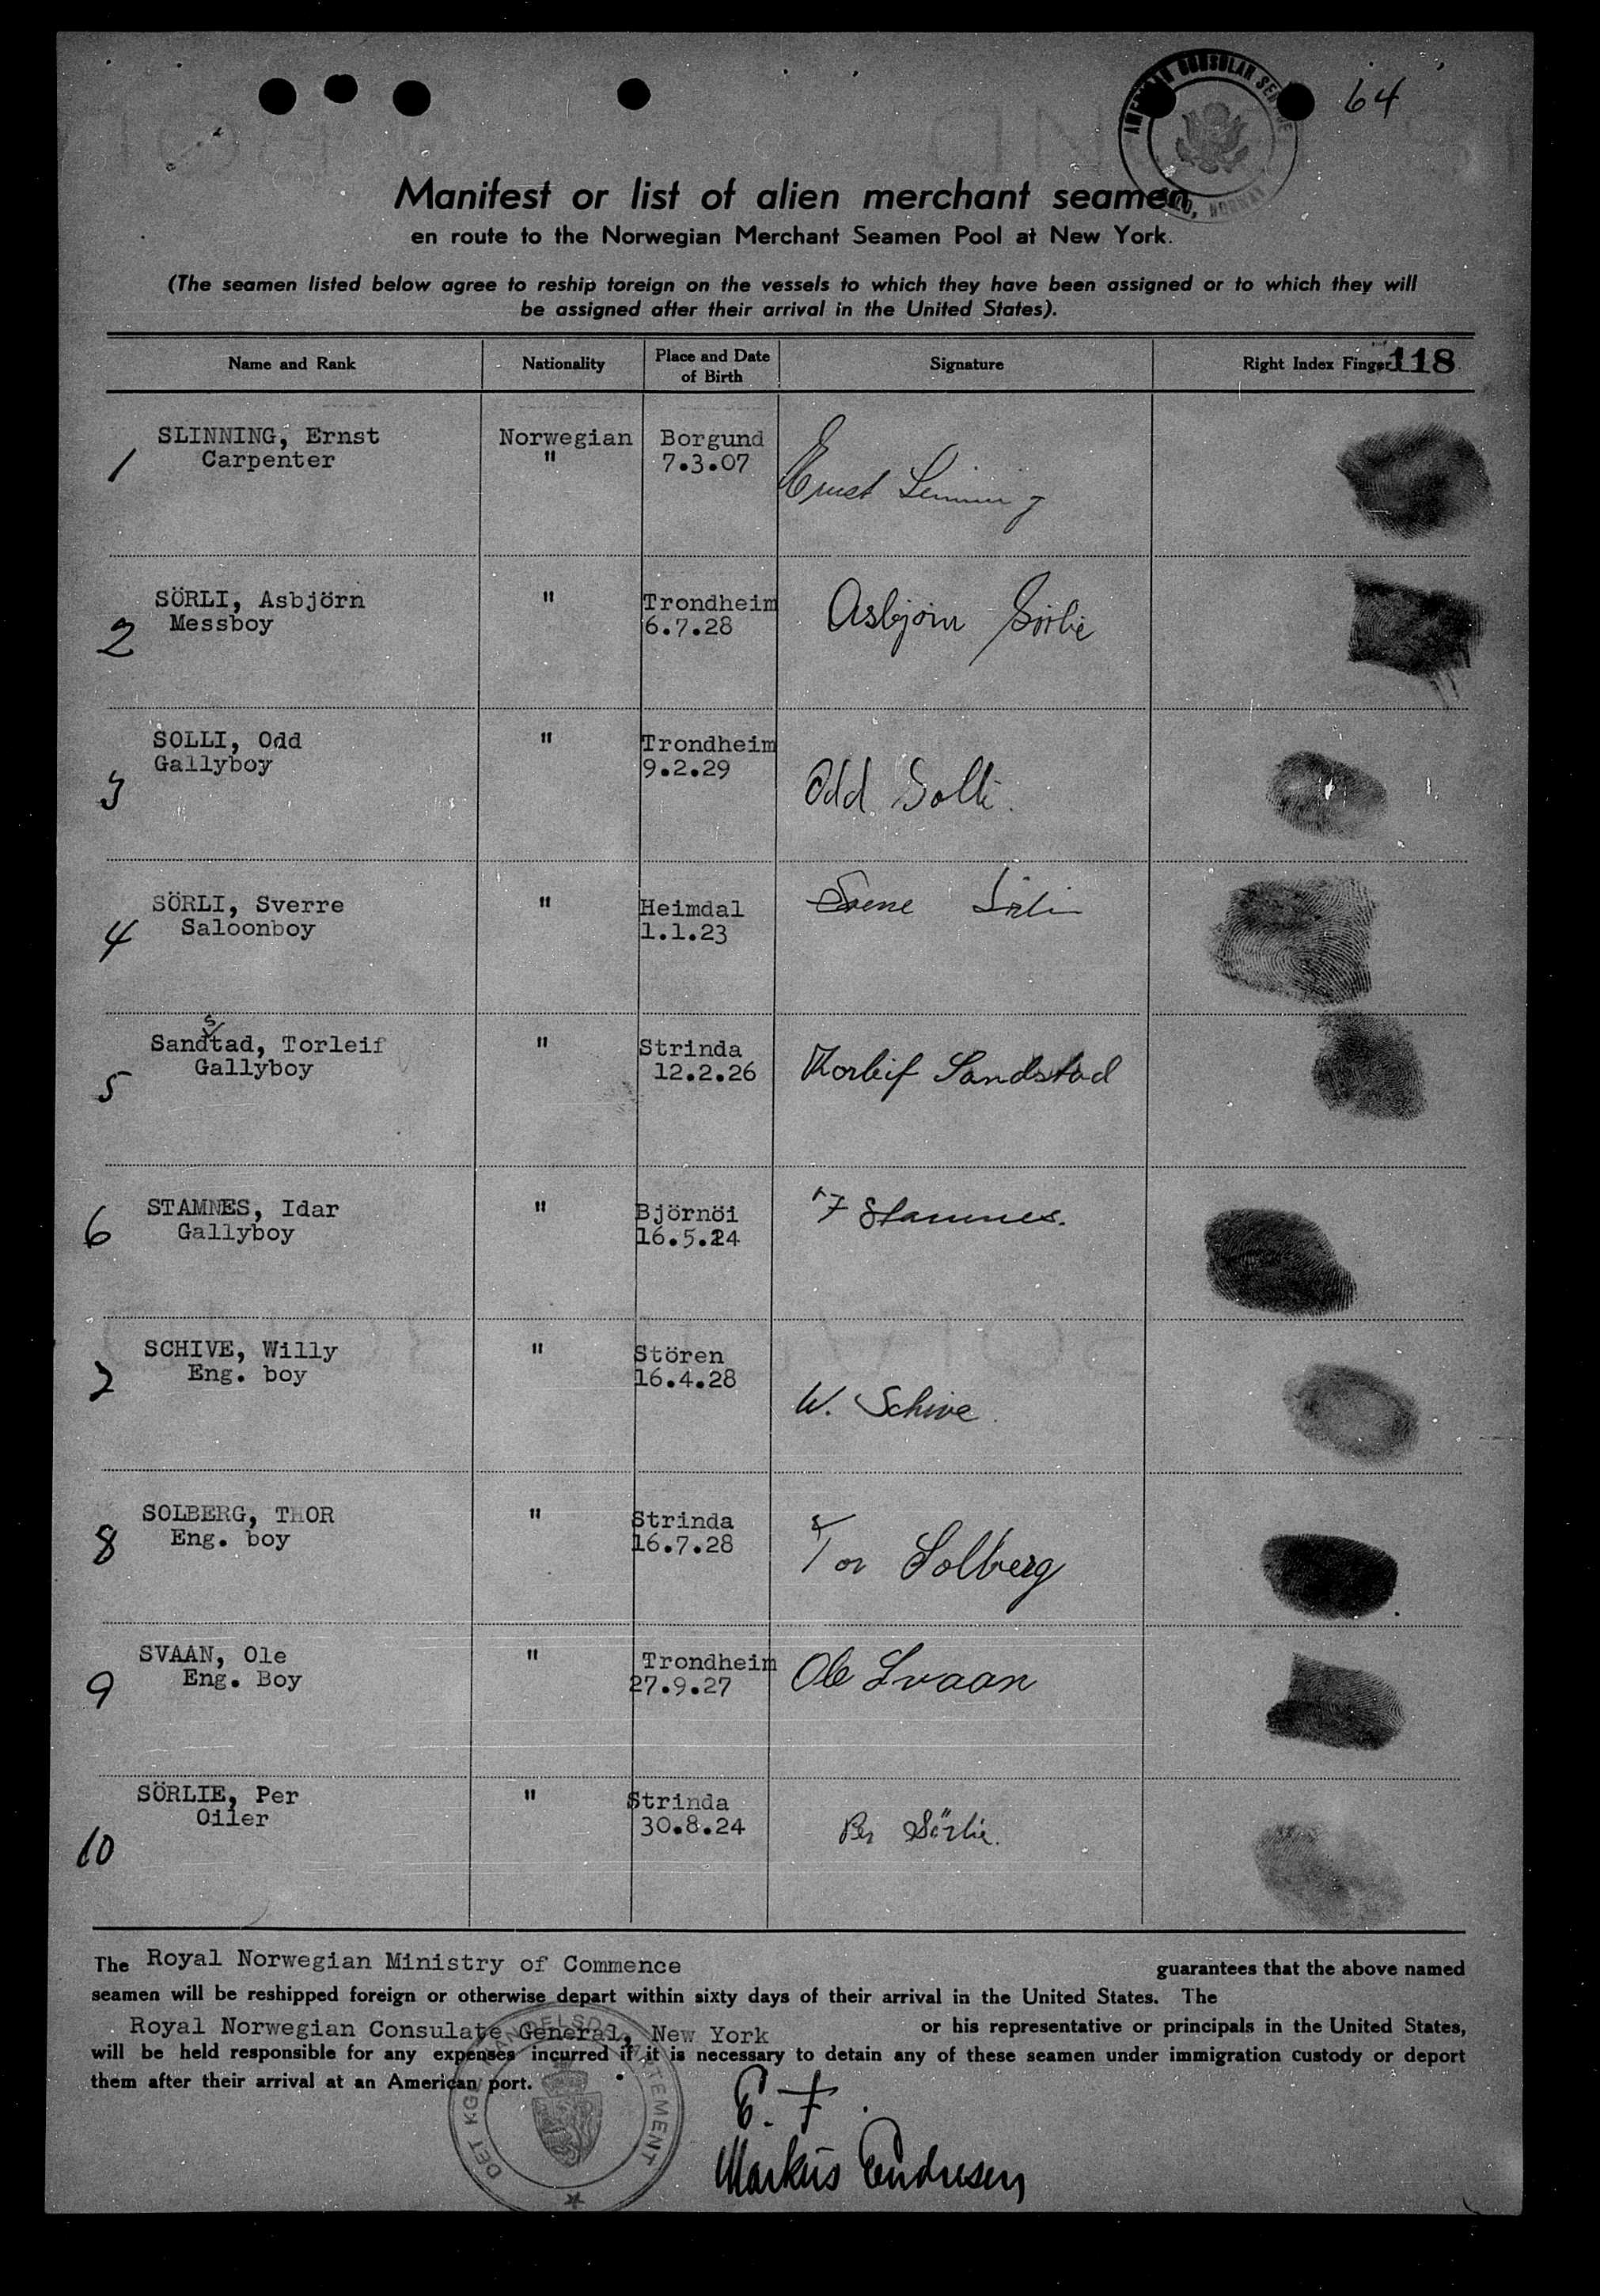 64
AMERICAN CONSULAR SERVICE
OSLO, NORWAY
Manifest or list of alien merchant seamen
en route to the Norwegian Merchant Seamen Pool at New York.
(The seamen listed below agree to reship foreign on the vessels to which they have been assigned or to which they will
be assigned after their arrival in the United States).
Name and Rank Nationality Place and Date of Birth Signature Right Index Finger 118
1 SLINNING, Ernst Norwegian Borgund
Carpenter " 7.3.07
Ernst Slinning
SÖRLI, Asbjörn " Trondheim
2 Messboy 6.7.28
Asbjörn Sörlie
SOLLI, Odd " Trondheim
3 Gallyboy 9.2.29
Odd Solli.
SÖRLI, Sverre " Heimdal
4 Saloonboy 1.1.23
Sverre Sörli
s
Sandtad, Torleif " Strinda
5 Gallyboy 12.2.26
Thorleif Sandstad
STAMNES, Idar " Björnöi
6 Gallyboy 16.5.24
Stamnes.
SCHIVE, Willy " Stören
7 Eng. boy 16.4.28
W. Schive.
SOLBERG, THOR " Strinda
8 Eng. boy 16.7.28
Tor Solberg
SVAAN, Ole " Trondheim
9 Eng. Boy 27.9.27
Ole Svaan
SÖRLIE, Per " Strinda
10 Oiler 30.8.24
Per Sörlie.
The Royal Norwegian Ministry of Commence guarantees that the above named
seamen will be reshipped foreign or otherwise depart within sixty days of their arrival in the United States. The
Royal Norwegian Consulate General, New York or his representative or principals in the United States,
will be held responsible for any expenses incurred if it is necessary to detain any of these seamen under immigration custody or deport
them after their arrival at an American port.
DET KGL HANDELSDEPARTEMENT
E. F.
Markus Endresen